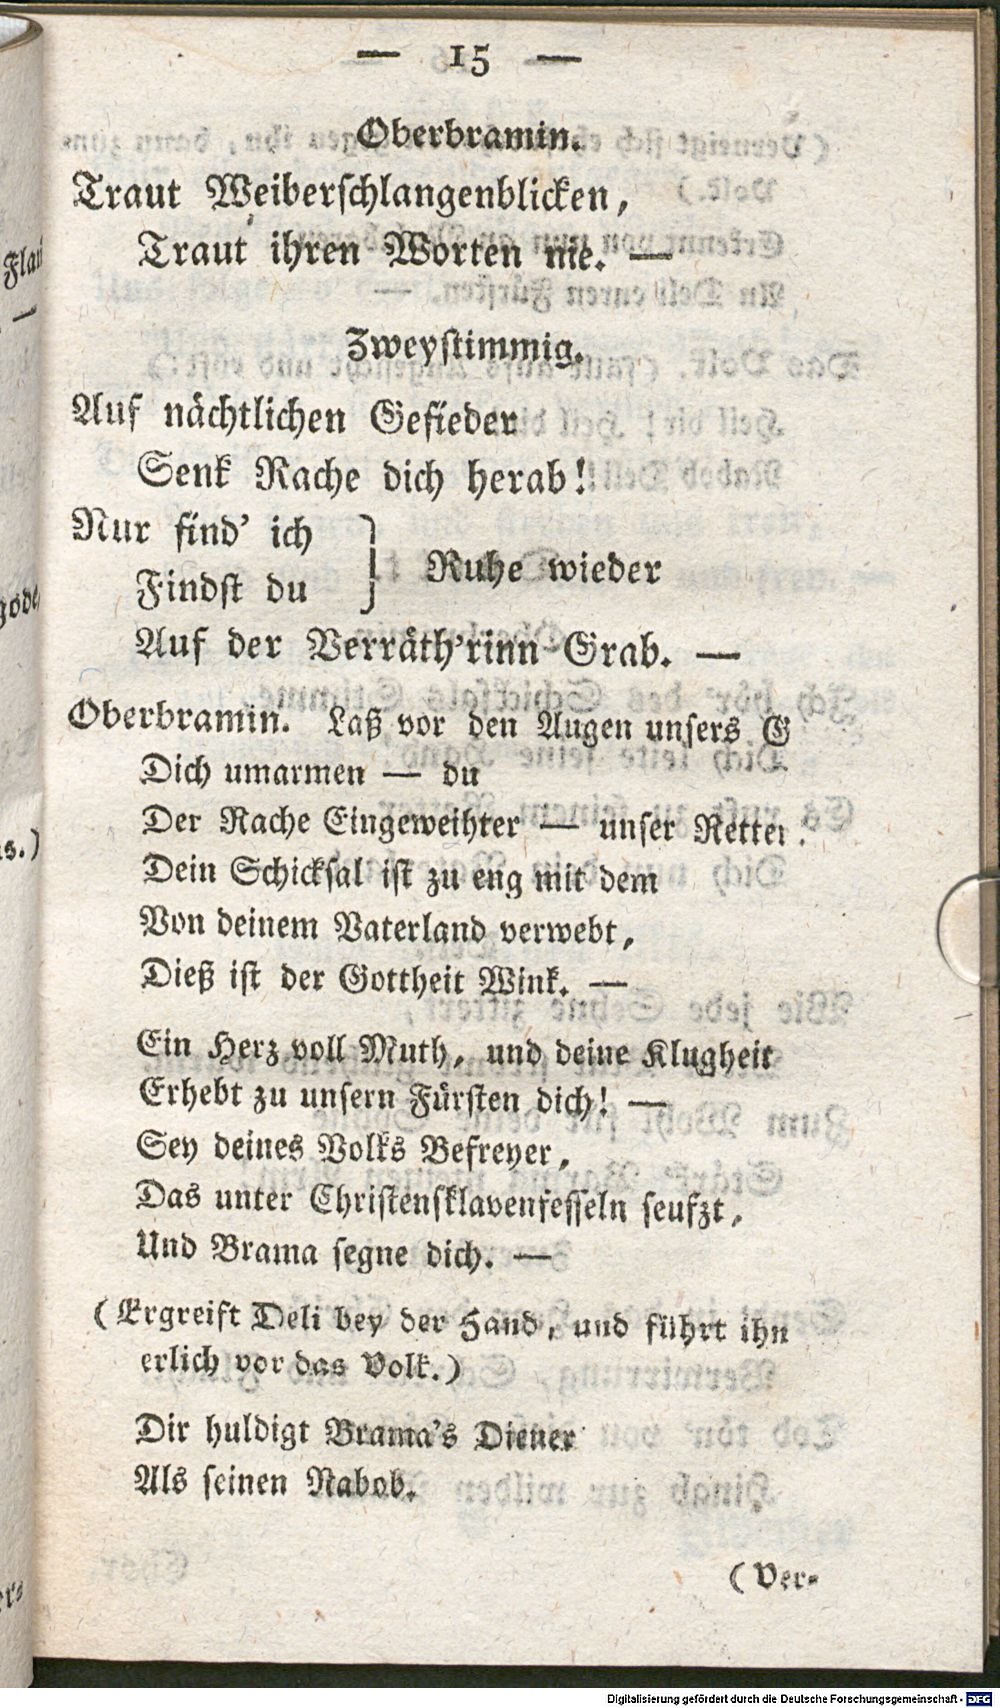 — 15 —
Oberbramin.
Traut Weiberschlangenblicken,
Traut ihren Worten nie. —
Zweystimmig.
Auf nächtlichen Gefieder
Senk Rache dich herab!
Nur find' ich
Findst du } Ruhe wieder
Auf der Verräth'rinn Grab. —
Oberbramin. Laß vor den Augen unsers G
Dich umarmen — du
Der Rache Eingeweihter — unser Retter.
Dein Schicksal ist zu eng mit dem
Von deinem Vaterland verwebt,
Dieß ist der Gottheit Wink. —
Ein Herz voll Muth, und deine Klugheit
Erhebt zu unsern Fürsten dich! —
Sey deines Volks Befreyer,
Das unter Christensklavenfesseln seufzt,
Und Brama segne dich. —
(Ergreift Deli bey der Hand, und führt ihn
erlich vor das Volk.)
Dir huldigt Brama's Diener
Als seinen Nabob.
(Ver-
Digitalisierung gefördert durch die Deutsche Forschungsgemeinschaft - DFG